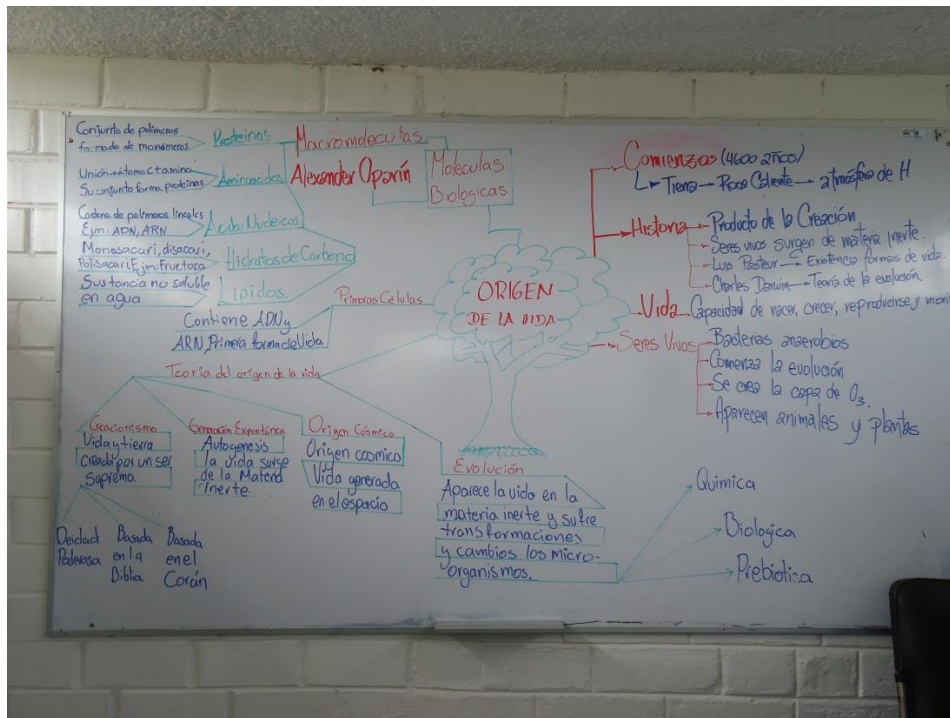 ORIGEN
DE LA VIDA
Moleculas
Biologicas
Macromoleculas
Alexander Oparín
Proteínas
Conjunto de polimeros
formado de monómeros
Aminoacidos
Su conjunto forma proteínas
Acidos Nucleicos
Cadena de polimeros lineales
Ejm: ADN, ARN
Hidratos de Carbono
Monosacari, disacari,
Polisacari, Ejm: Fructosa
Lipidos.
Sustancia no soluble
en agua
Primeras Células
Contiene ADN y
ARN, Primera forma de Vida
Teoría del origen de la vida
Creacionismo
Vida y tierra
creada por un ser
Supremo.
Deidad
Poderosa
Basada
en la
Biblia
Basada
en el
Corán
Generación Expontánea
Autogenesis
la vida surge
de la Materia
Inerte.
Origen Cósmico
Origen cosmico
Vida generada
en el espacio
Evolución
Aparece la vida en la
materia inerte y sufre
transformaciones
y cambios los micro-
organismos.
Quimica
Biologica
Prebiotica
Comienzos (4600 años)
Tierra — Roca Caliente → atmósfera de H
Historia
Producto de la Creación
Seres vivos surgen de materia Inerte.
Luis Pasteur — Existencia formas de vida.
Charles Darwin — Teoría de la evolución.
Vida
Capacidad de nacer, crecer, reproducirse y morir
Seres Vivos
Bacterias anaerobios
Comienza la evolución
Se crea la capa de O3.
Aparecen animales y plantas